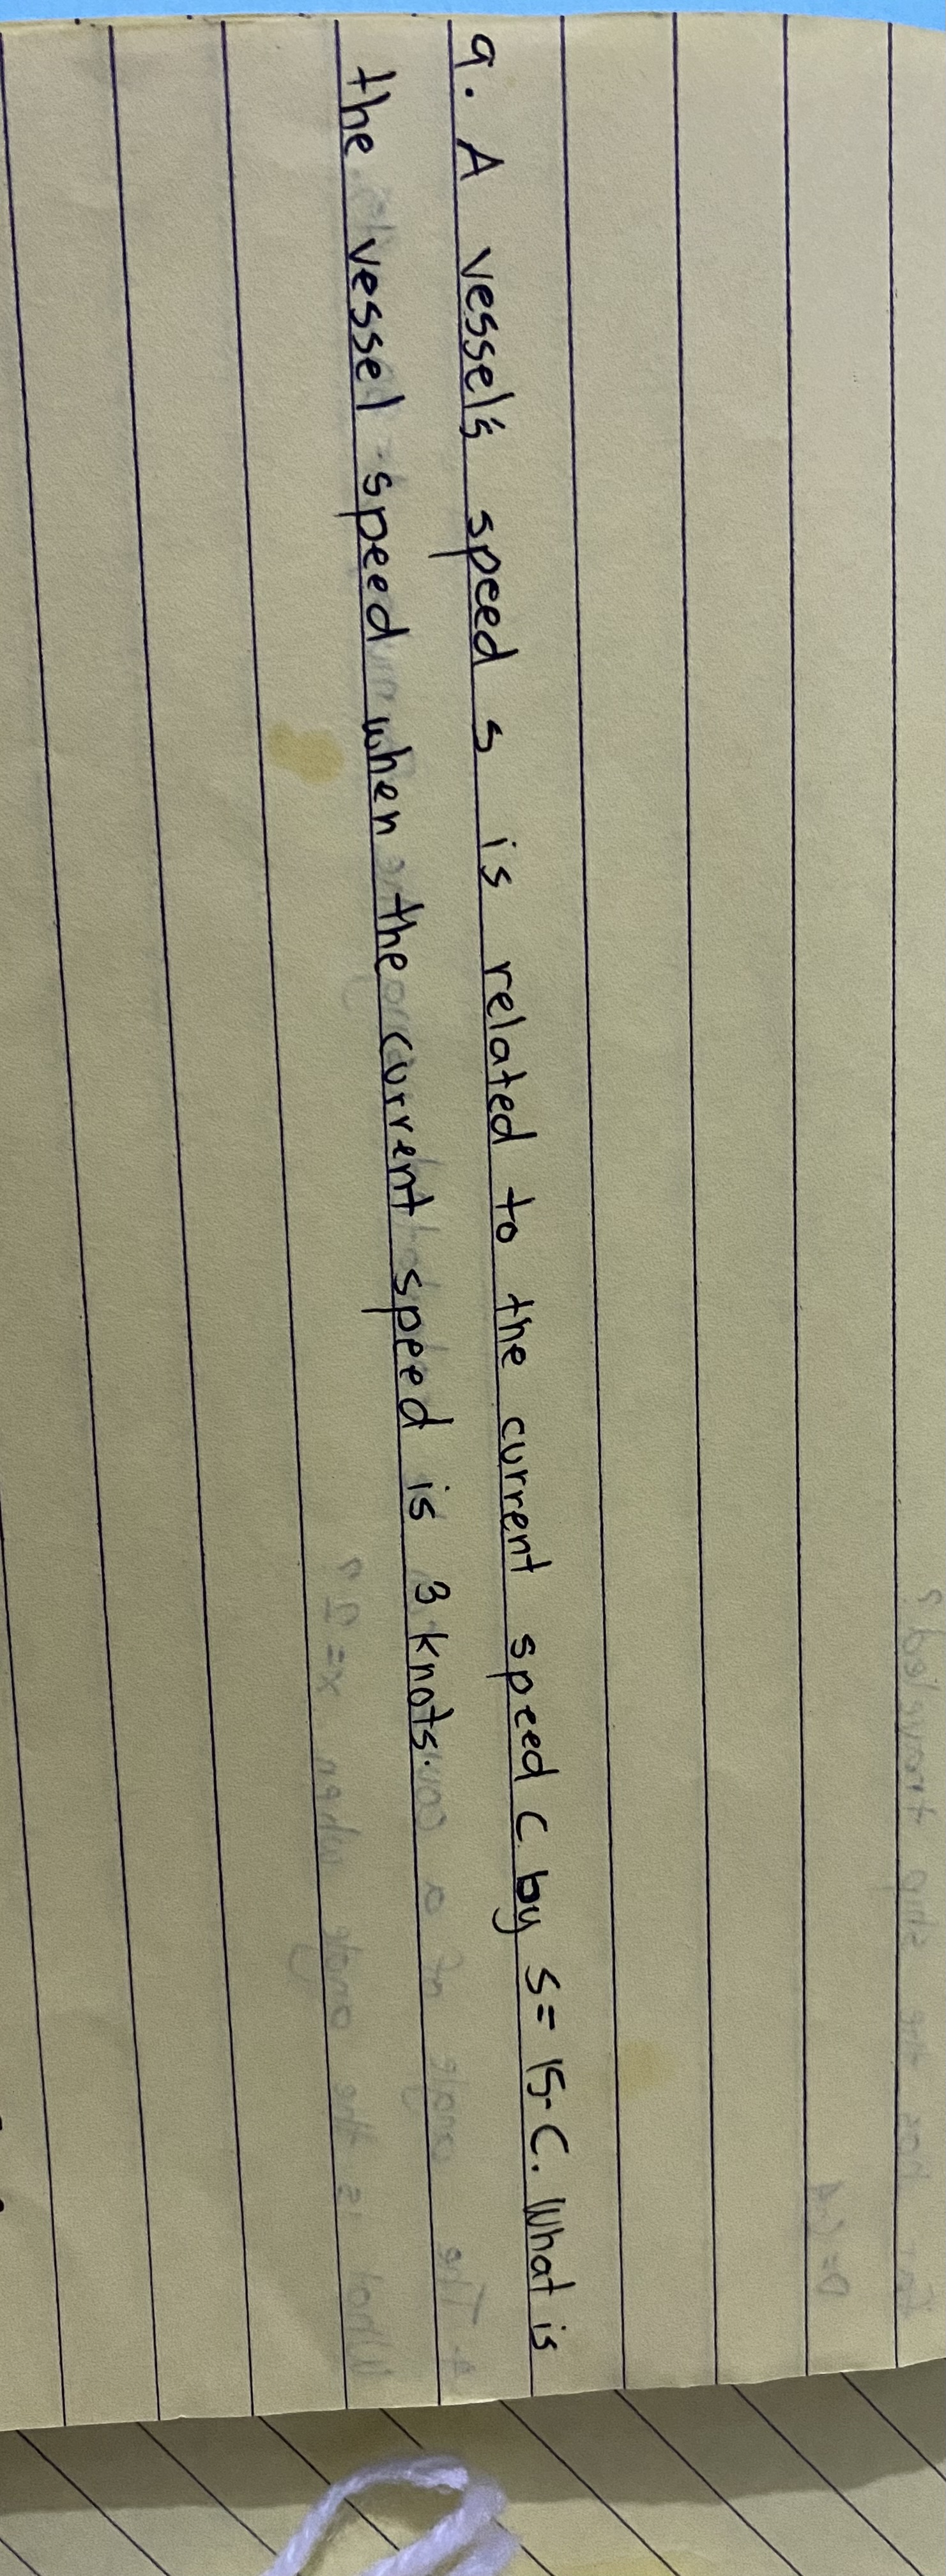 9. A vessel's speed s is related to the current speed C by S= 15-C. What is
the vessel speed when the current speed is 3 knots.